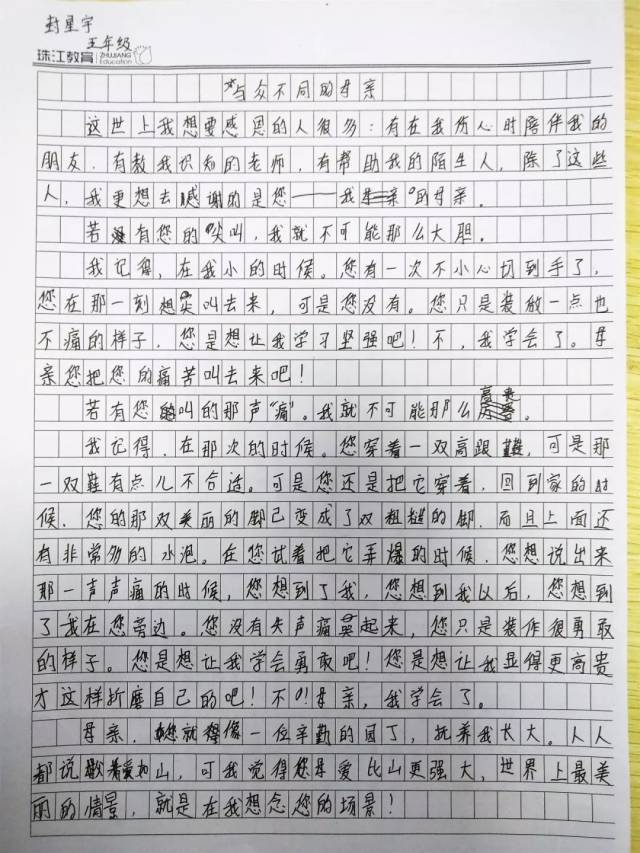 封星宇
五年级
珠江教育 ZHUJIANG Education
与众不同的母亲
这世上我想要感恩的人很多：有在我伤心时陪伴我的
朋友．有教我识知的老师，有帮助我的陌生人，除了这些
人，我更想去感谢的是您——我的母亲。
若没有您的尖叫，我就不可能那么大胆。
我记得，在我小的时候。您有一次不小心切到手了，
您在那一刻想尖叫去来，可是您没有。您只是装做一点也
不痛的样子，您是想让我学习坚强吧！不，我学会了。母
亲您把您的痛苦叫去来吧！
若有您叫的那声“痛”。我就不可能那么高贵。
我记得．在那次的时候。您穿着一双高跟鞋，可是那
一双鞋有点儿不合适。可是您还是把它穿着．回到家的时
候．您的那双美丽的脚已变成了双粗糙的脚．而且上面还
有非常多的水泡。在您试着把它弄爆的时候．您想说出来
那一声声痛的时候，您想到了我，您想到我以后，您想到
了我在您旁边。您没有失声痛哭起来，您只是装作很勇敢
的样子。您是想让我学会勇敢吧！您是想让我显得更高贵
才这样折磨自己的吧！不！母亲，我学会了。
母亲．您就像一位辛勤的园丁，抚养我长大。人人
都说爱如山，可我觉得您母爱比山更强大，世界上最美
丽的情景，就是在我想念您的场景！